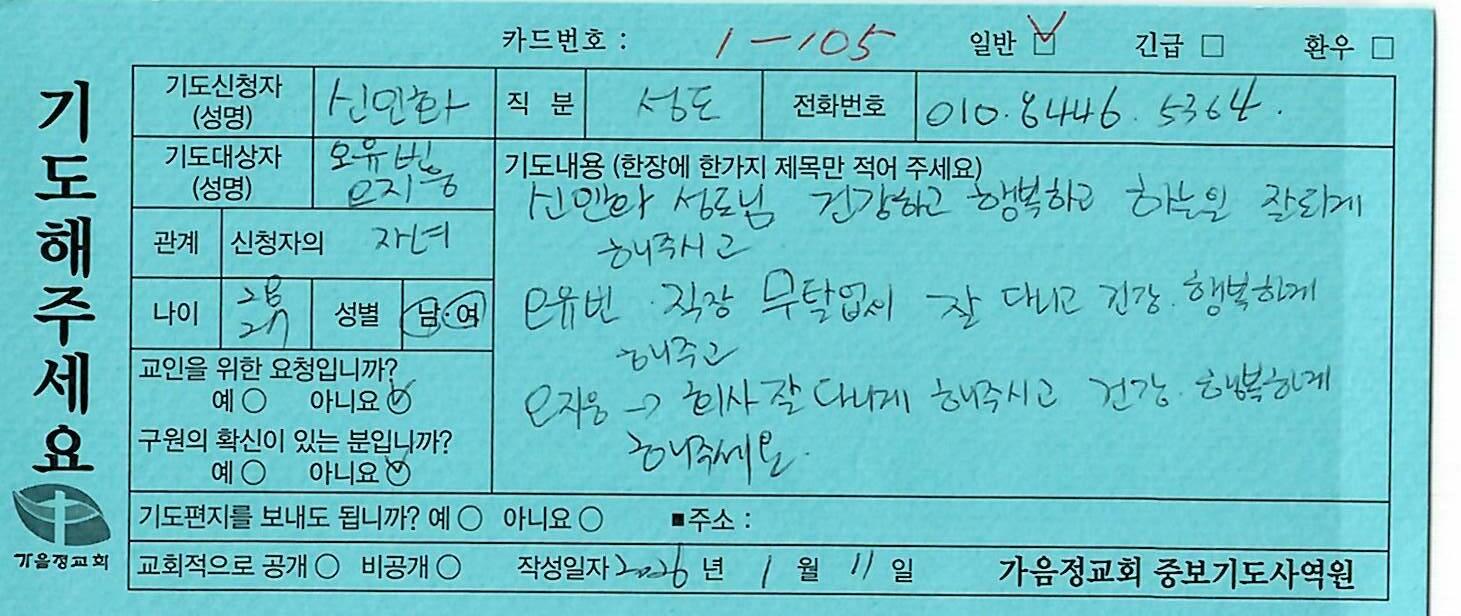 카드번호 : 1-105 일반 ☑ 긴급 □ 환우 □
기도해주세요
기도신청자 (성명) 신민화 직 분 성도 전화번호 010.8446.5364.
기도대상자 (성명) 오유빈 오지웅
관계 신청자의 자녀
나이 성별 남·여
교인을 위한 요청입니까?
예 ○ 아니요 ✓
구원의 확신이 있는 분입니까?
예 ○ 아니요 ✓
기도내용 (한장에 한가지 제목만 적어 주세요)
신민화 성도님 건강하고 행복하고 하는일 잘되게
해주시고
오유빈 . 직장 무탈업시 잘 다니고 건강. 행복하게
해주고
오지웅 → 회사 잘 다니게 해주시고 건강. 행복하게
해주세요.
기도편지를 보내도 됩니까? 예 ○ 아니요 ○ ■주소 :
교회적으로 공개 ○ 비공개 ○ 작성일자 2026 년 1 월 11 일 가음정교회 중보기도사역원
가음정교회